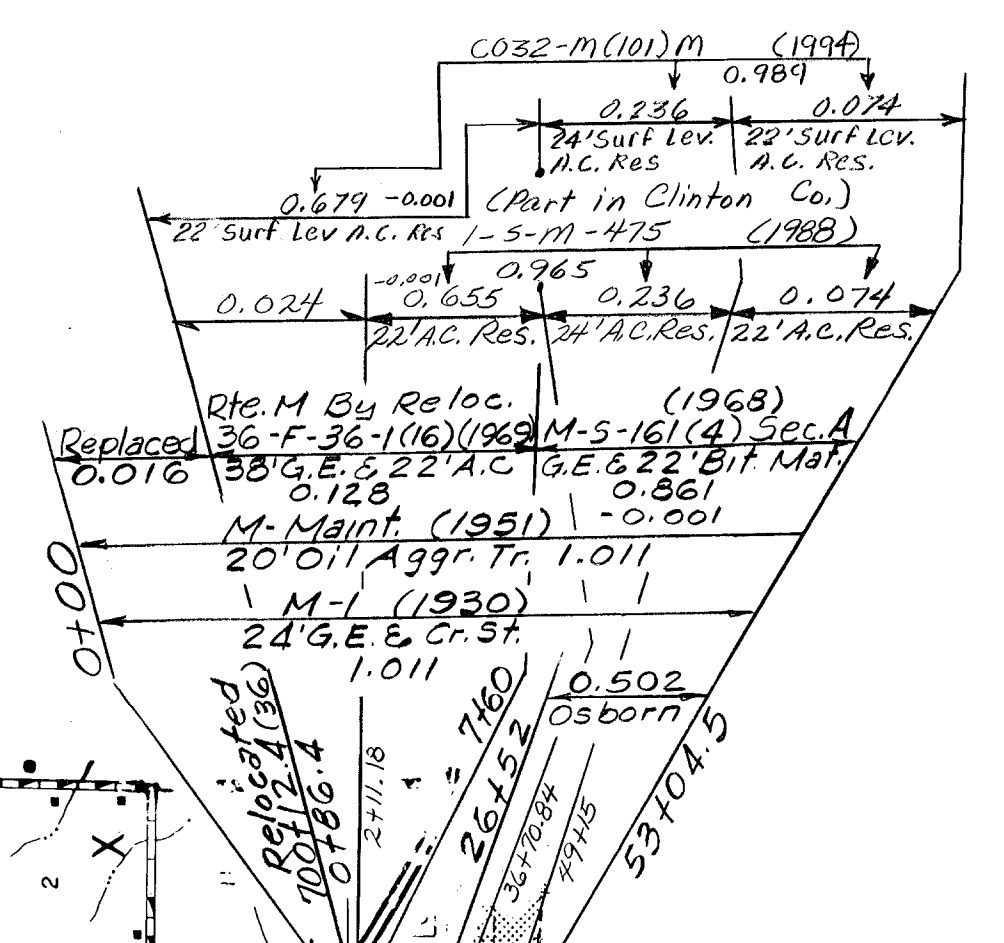 C032-M(101)M (1994)
0.989
0.236 0.074
24'Surf Lev. 22'Surf Lev.
A.C. Res A.C. Res.
0.679 -0.001 (Part in Clinton Co.)
22' Surf Lev A.C. Res 1-S-M-475 (1988)
-0.001 0.965
0.024 0.655 0.236 0.074
22'A.C. Res. 24'A.C.Res. 22'A.C. Res.
Rte. M By Reloc. (1968)
Replaced 36-F-36-1(16)(1969) M-S-161(4) Sec.A
0.016 38'G.E. & 22'A.C G.E. & 22'Bit Mat.
0.128 0.861
-0.001
M-Maint. (1951)
20'Oil Aggr. Tr. 1.011
0+00
M-1 (1930)
24'G.E. & Cr. St.
1.011
0.502
Osborn
Relocated
700+12.4 (36)
0+86.4
2+11.18
7+60
26+52
36+70.84
49+15
53+04.5
X
2